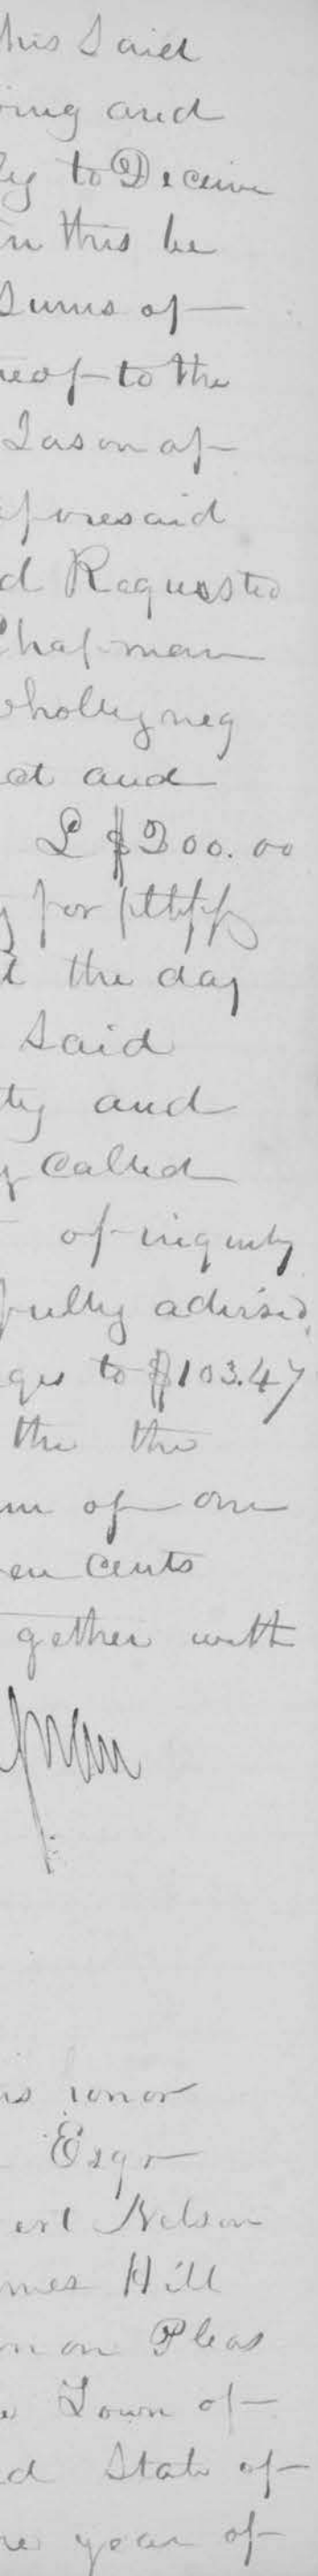 his Said
ing and
ly to Deceive
in this be
Sums of
reof to the
Jason of
aforesaid
d Requested
Chapman
wholly neg
ct and
$200.00
for pltff
t the day
Said
ty and
y Called
of inquiry
fully advised
ges to $103.47
the the
um of one
en Cents
gether with
pman
is honor
Esqr
ert Nelson
mes Hill
mon Pleas
e Town of
d State of
he year of